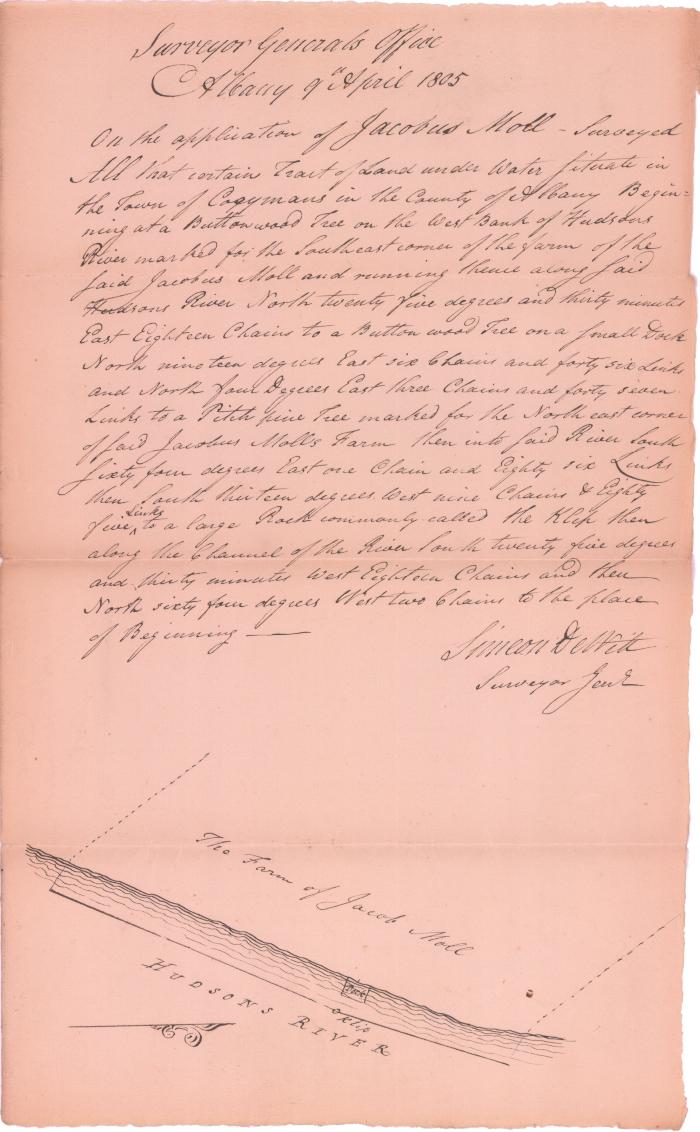 Surveyor Generals Office
Albany 9th April 1805
On the application of Jacobus Moll - Surveyed
All that certain Tract of Land under Water situate in
the Town of Coeymans in the County of Albany Begin=
ning at a Buttonwood Tree on the West Bank of Hudsons
River marked for the Southeast corner of the farm of the
said Jacobus Moll and running thence along said
Hudsons River North twenty five degrees and thirty minutes
East Eighteen Chains to a Button wood Tree on a small Dock
North nineteen degrees East six Chains and forty six Links
and North four Degrees East three Chains and forty seven
Links to a Pitch pine Tree marked for the North east corner
of said Jacobus Moll's Farm then into said River South
sixty four degrees East one Chain and Eighty six Links
then South thirteen degrees West nine Chains & Eighty
five Links to a large Rock commonly called the Klip then
along the Channel of the River South twenty five degrees
and thirty minutes West Eighteen Chains and then
North sixty four degrees West two Chains to the place
of Beginning
Simeon DeWitt
Surveyor Genl
The Farm of Jacob Moll
Dock
Klip
HUDSONS RIVER